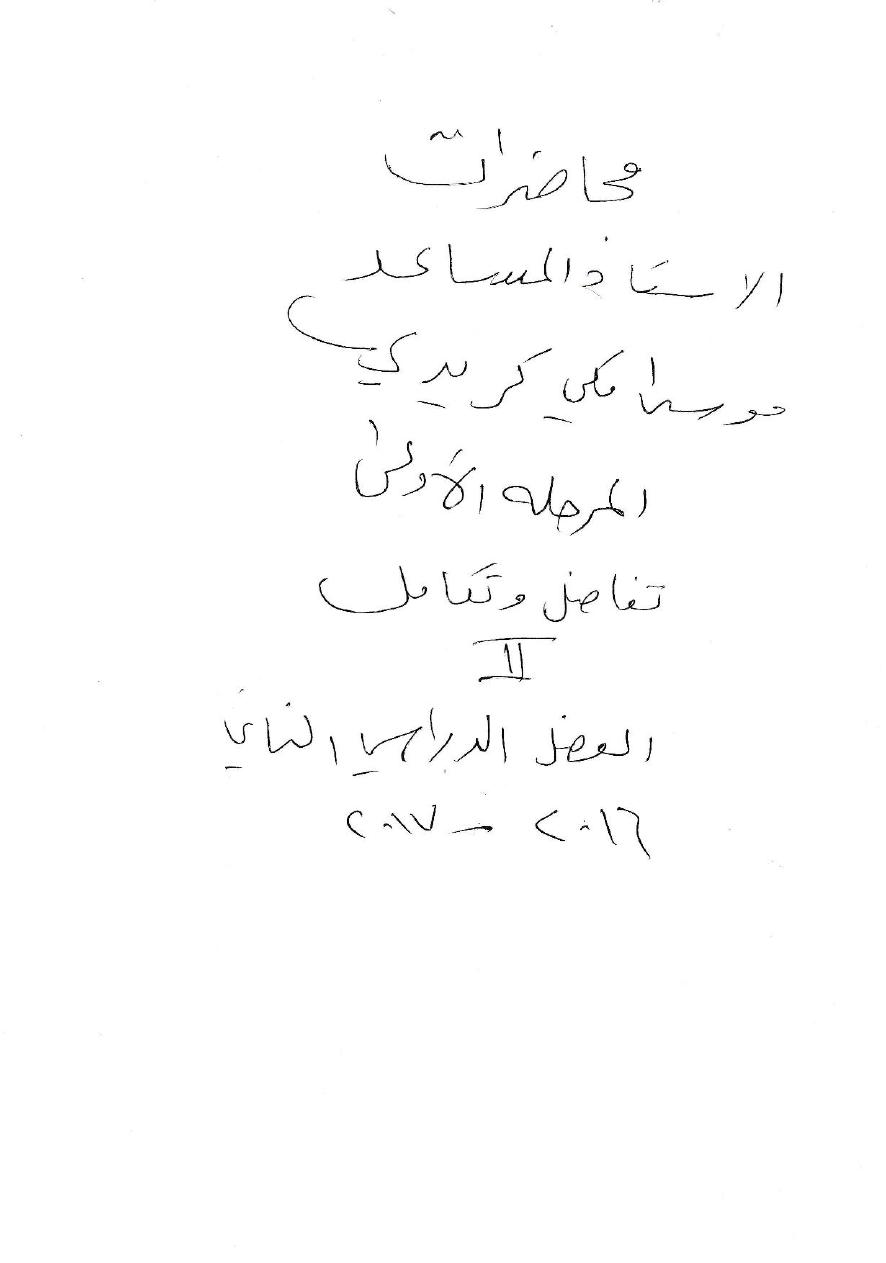 محاضرات
الاستاذ المساعد
موسى مكي كريدي
المرحله الأولى
تفاضل وتكامل
II
الفصل الدراسي الثاني
٢٠١٦ - ٢٠١٧